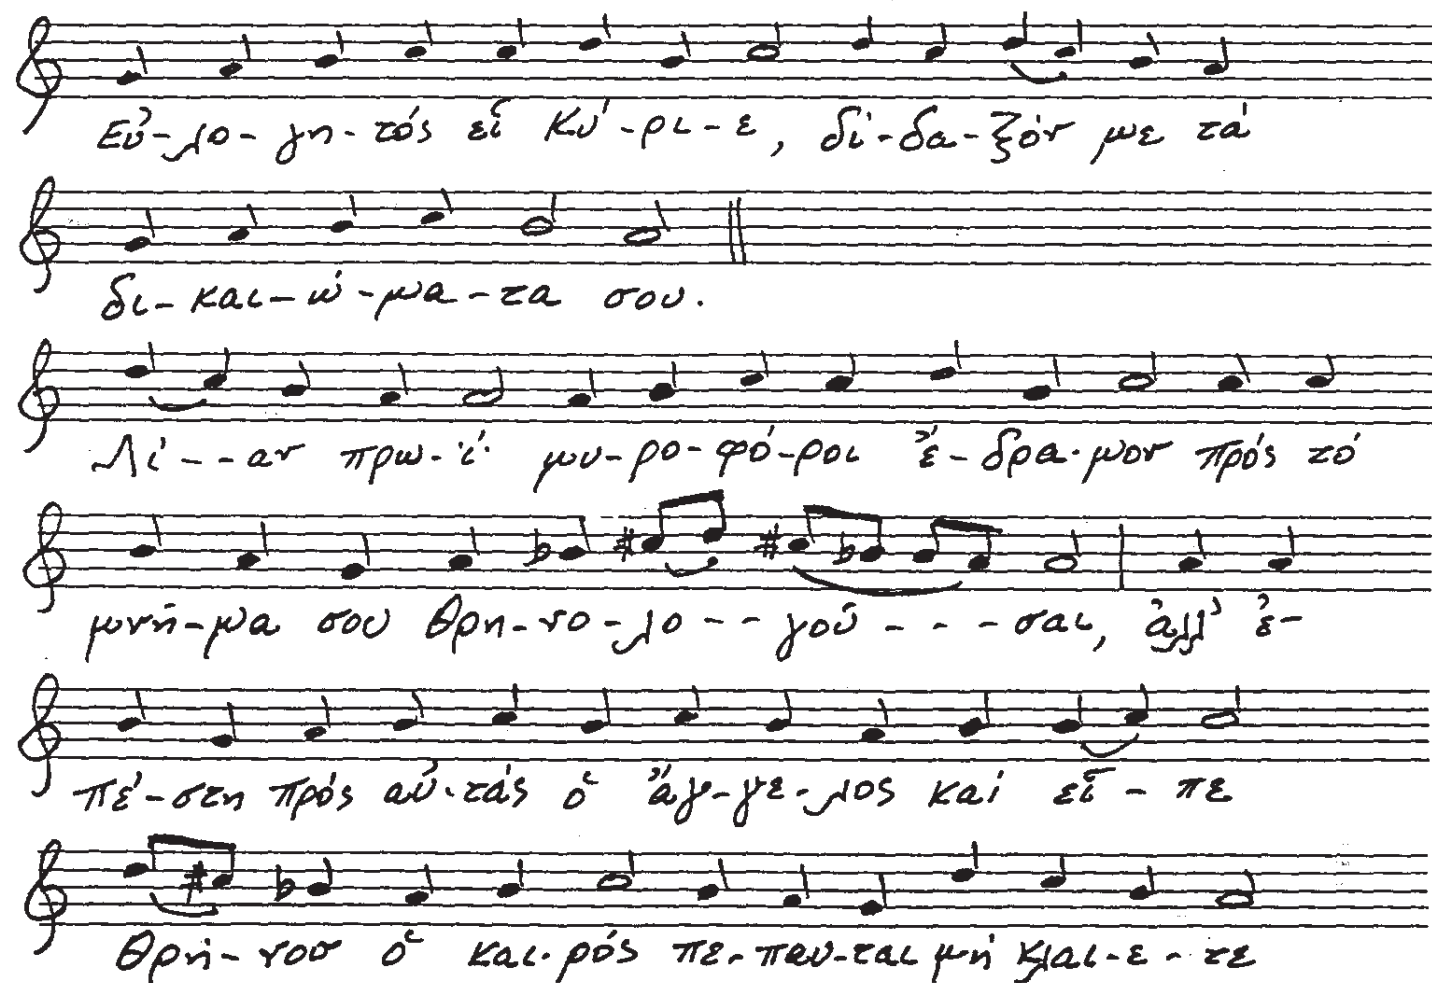 Εὐ-λο-γη-τός εἶ Κύ-ρι-ε, δί-δα-ξόν με τά
δι-και-ώ-μα-τα σου.
Λί--αν πρω-ΐ μυ-ρο-φό-ροι ἔ-δρα-μον πρός τό
μνή-μα σου θρη-νο-λο--γοῦ---σαι, ἀλλ' ἐ-
πέ-στη πρός αὐ-τάς ὁ ἄγ-γε-λος καί εἶ-πε
θρή-νοσ ὁ και-ρός πε-παυ-ται μή κλαι-ε-τε